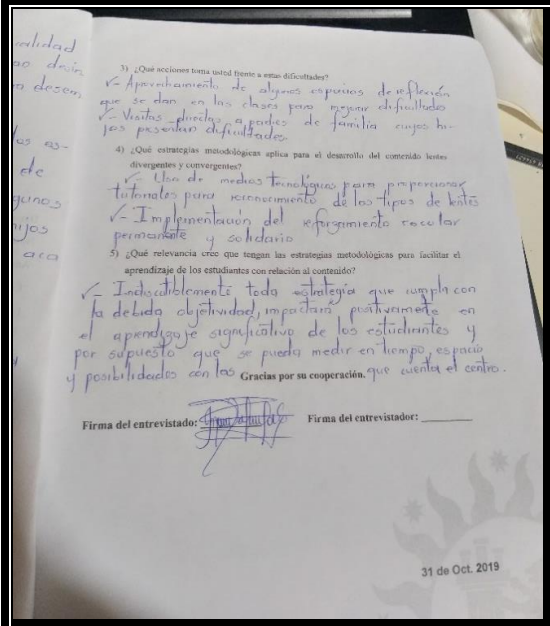 3) ¿Qué acciones toma usted frente a estas dificultades?
✓- Aprovechamiento de algunos espacios de reflexión
que se dan en las clases para mejorar dificultades
✓- Visitas directas a padres de familia cuyos hi-
jos presentan dificultades
4) ¿Qué estrategias metodológicas aplica para el desarrollo del contenido lentes
divergentes y convergentes?
✓- Uso de medios tecnológicos para proporcionar
tutoriales para reconocimiento de los tipos de lentes
✓- Implementación del reforzamiento escolar
permanente y solidario
5) ¿Qué relevancia cree que tengan las estrategias metodológicas para facilitar el
aprendizaje de los estudiantes con relación al contenido?
✓- Indiscutiblemente toda estrategia que cumpla con
la debida objetividad, impactará positivamente en
el aprendizaje significativo de los estudiantes y
por supuesto que se pueda medir en tiempo, espacio
y posibilidades con las que cuenta el centro.
Gracias por su cooperación.
Firma del entrevistado:
Firma del entrevistador: ________
31 de Oct. 2019
de
gunos
aca